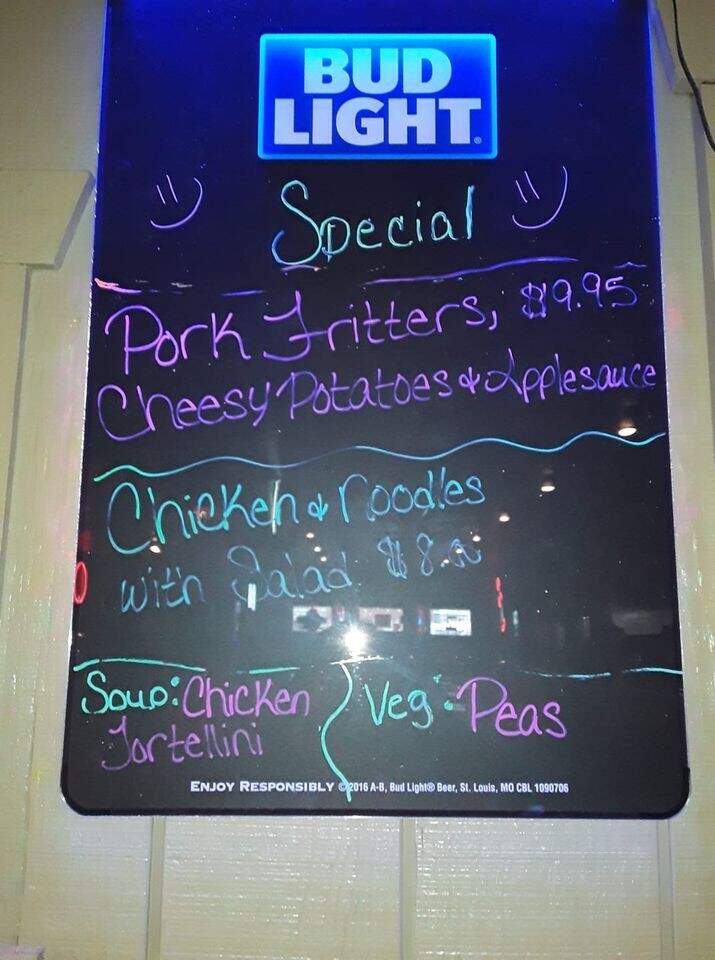 BUD
LIGHT®
Special
Pork Fritters, $9.95
Cheesy Potatoes & Applesauce
Chicken & Noodles
with Salad $8.00
Soup: Chicken
Tortellini
Veg: Peas
ENJOY RESPONSIBLY ©2016 A-B, Bud Light® Beer, St. Louis, MO CBL 1090706